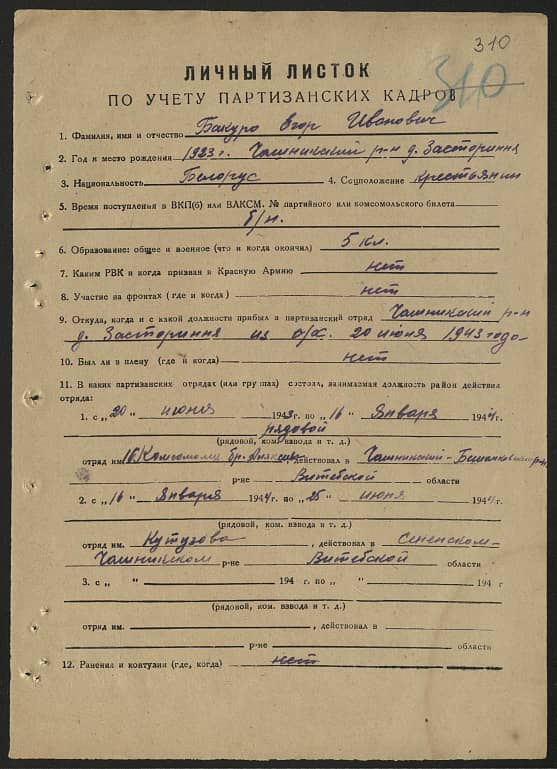 310
310
ЛИЧНЫЙ ЛИСТОК
ПО УЧЕТУ ПАРТИЗАНСКИХ КАДРОВ
1. Фамилия, имя и отчество Бакуро Егор Иванович
2. Год и место рождения 1923 г. Чашникский р-н д. Засториння
3. Национальность Белорус 4. Соцположение крестьянин
5. Время поступления в ВКП(б) или ВЛКСМ. № партийного или комсомольского билета
б/п.
6. Образование: общее и военное (что и когда окончил) 5 кл.
7. Каким РВК и когда призван в Красную Армию нет
8. Участие на фронтах (где и когда) нет
9. Откуда, когда и с какой должности прибыл в партизанский отряд Чашникский р-н
д. Засториння из с/х. 20 июня 1943 года
10. Был ли в плену (где и когда) нет
11. В каких партизанских отрядах (или группах) состоял, занимаемая должность район действия
отряда:
1. с „20" июня 1943 г. по „16" Января 1944 г.
рядовой
(рядовой, ком. взвода и т. д.)
отряд им. 16 Комсомола бр. , действовал в Чашникский-
р-не Витебской области
2. с „16" Января 1944 г. по „25" июня 1944 г.
(рядовой, ком. взвода и т. д.)
отряд им. Кутузова , действовал в Сененском-
Чашникском р-не Витебской области
3. с „ " 194 г. по „ " 194 г
(рядовой, ком. взвода и т. д.)
отряд им. , действовал в
р-не области
12. Ранения и контузия (где, когда) нет